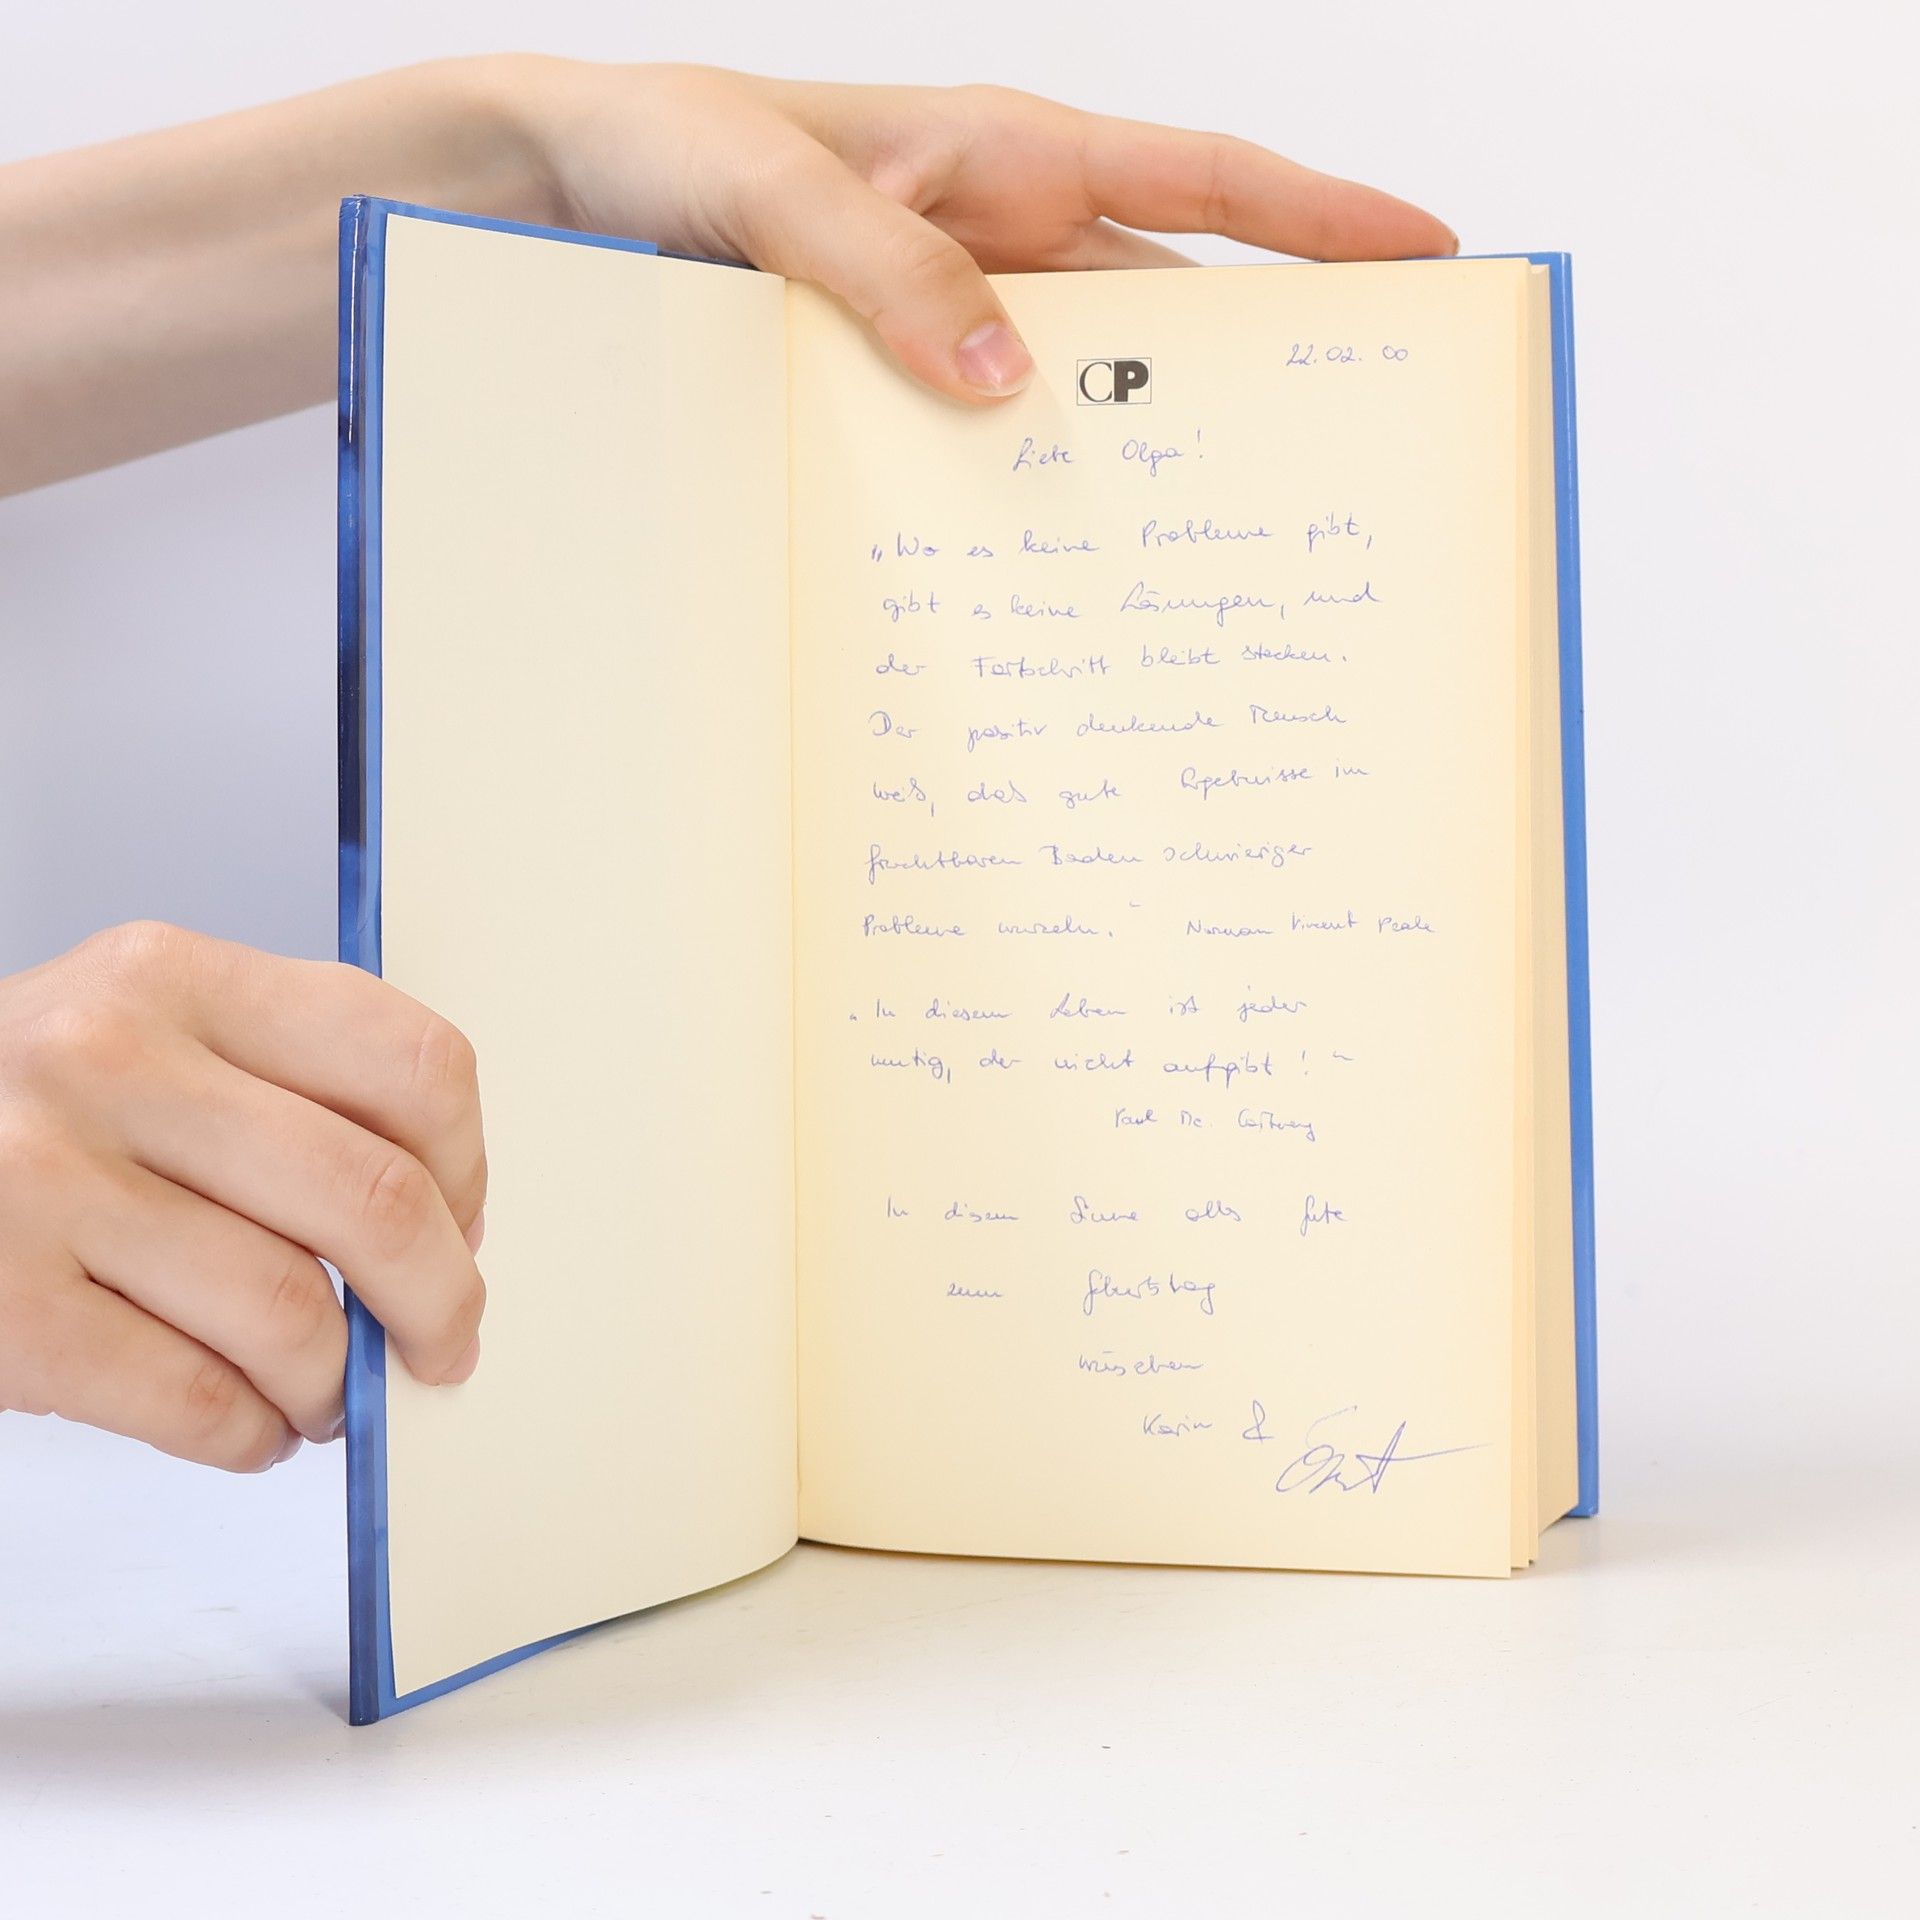 CP
22.02.00
Liebe Olga!
„Wo es keine Probleme gibt,
gibt es keine Lösungen, und
der Fortschritt bleibt stecken.
Der positiv denkende Mensch
weiß, daß gute Ergebnisse im
fruchtbaren Boden schwieriger
Probleme wurzeln.“ Norman Vincent Peale
„In diesem Leben ist jeder
mutig, der nicht aufgibt!“
Paul Mc. Cartney
In diesem Sinne alles Gute
zum Geburtstag
wünschen
Karin &